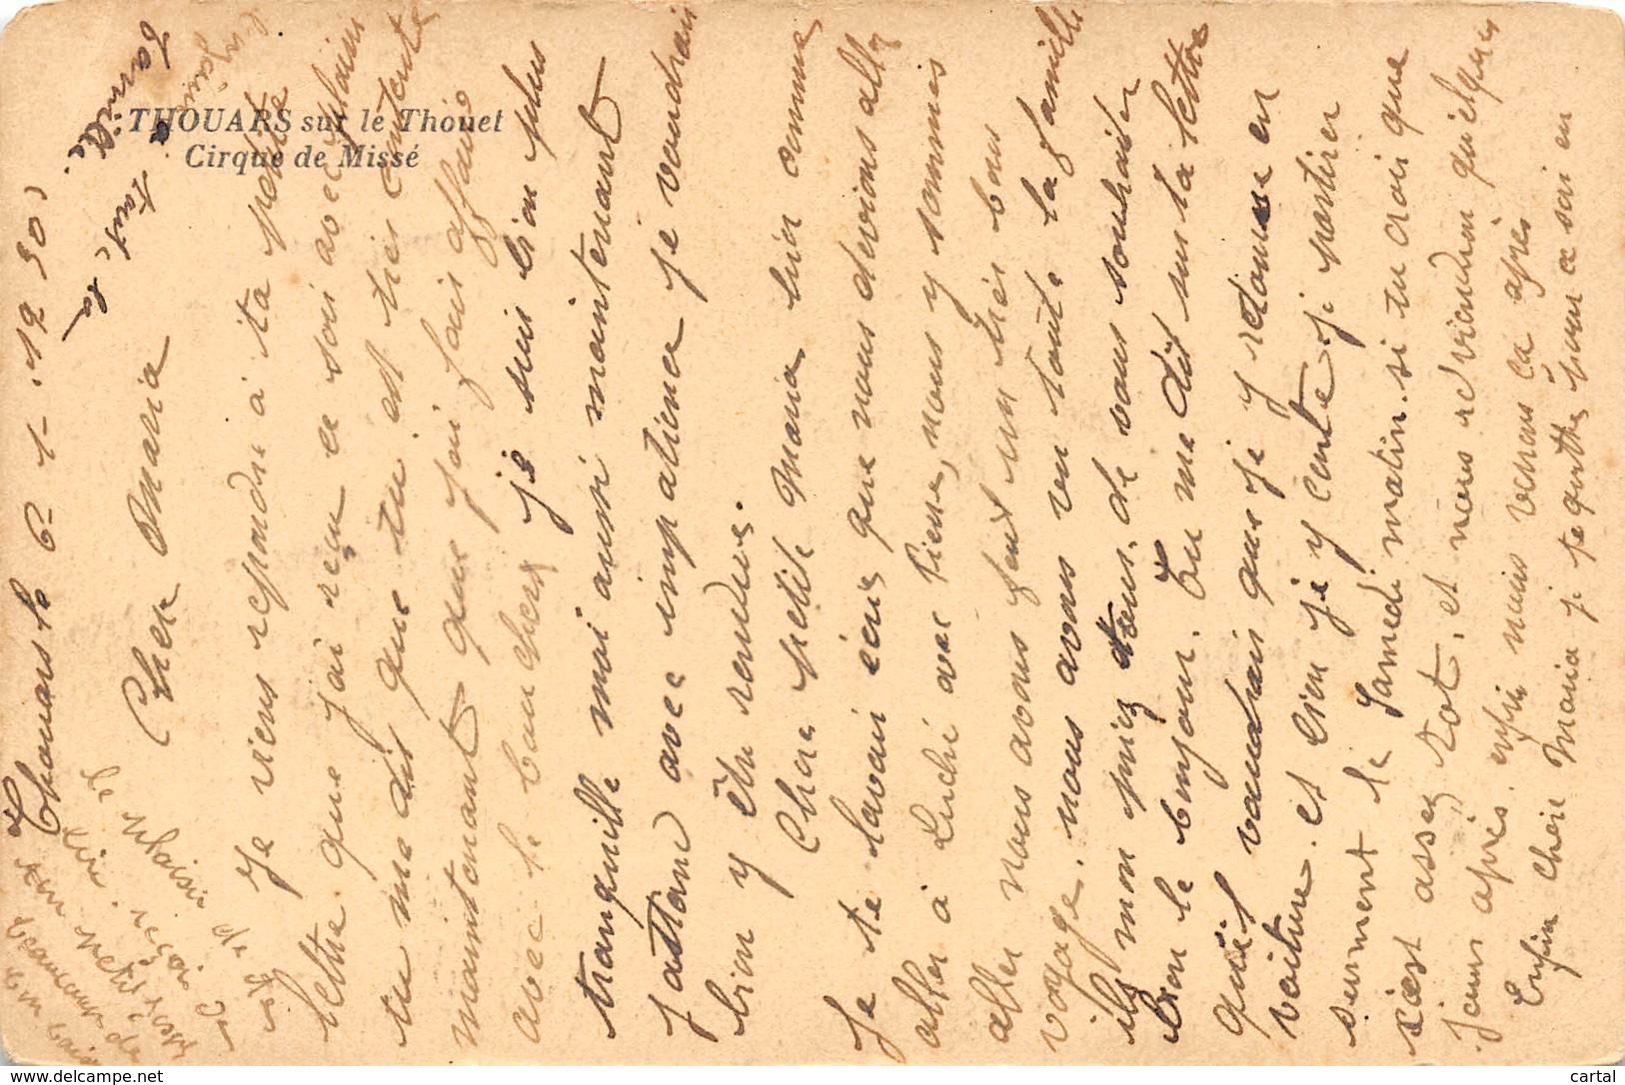 THOUARS sur le Thouet
Cirque de Missé
Thouars le 6-1-1930
Cher Maria
Je viens respondre a ta petite
lettre que j'ai reçu ce soir avec plaisir
tu me dit que tu est tres contente
maintenant que j'ai fais affaire
avec le boucher je suis bien plus
tranquille moi aussi maintenant
j'attend avec impatience je voudrais
bien y être rendue.
Chere petite Maria bien comme
Je te l'avais écris que nous devions aller
aller à Luché avec Pierre, nous y sommes
aller nous avons fait un très bon
voyage. nous avons vu toute la famille
ils mon priez tous, de vous souhaiter
bien le bonjour. Tu me dit sur ta lettre
qu'il voudrais que je y retourne en
voiture. et bien je y compte, je partirer
surment le Samedi matin. si tu crois que
c'est assez tot, et nous reviendrer quelques
jours après. enfin nous verrons ça après
Enfin chère Maria je te quitte pour ce soir en
le plaisir de te
lire. reçoi de
ton petit
beaucoup de
bon baiser
a toute la
famille.